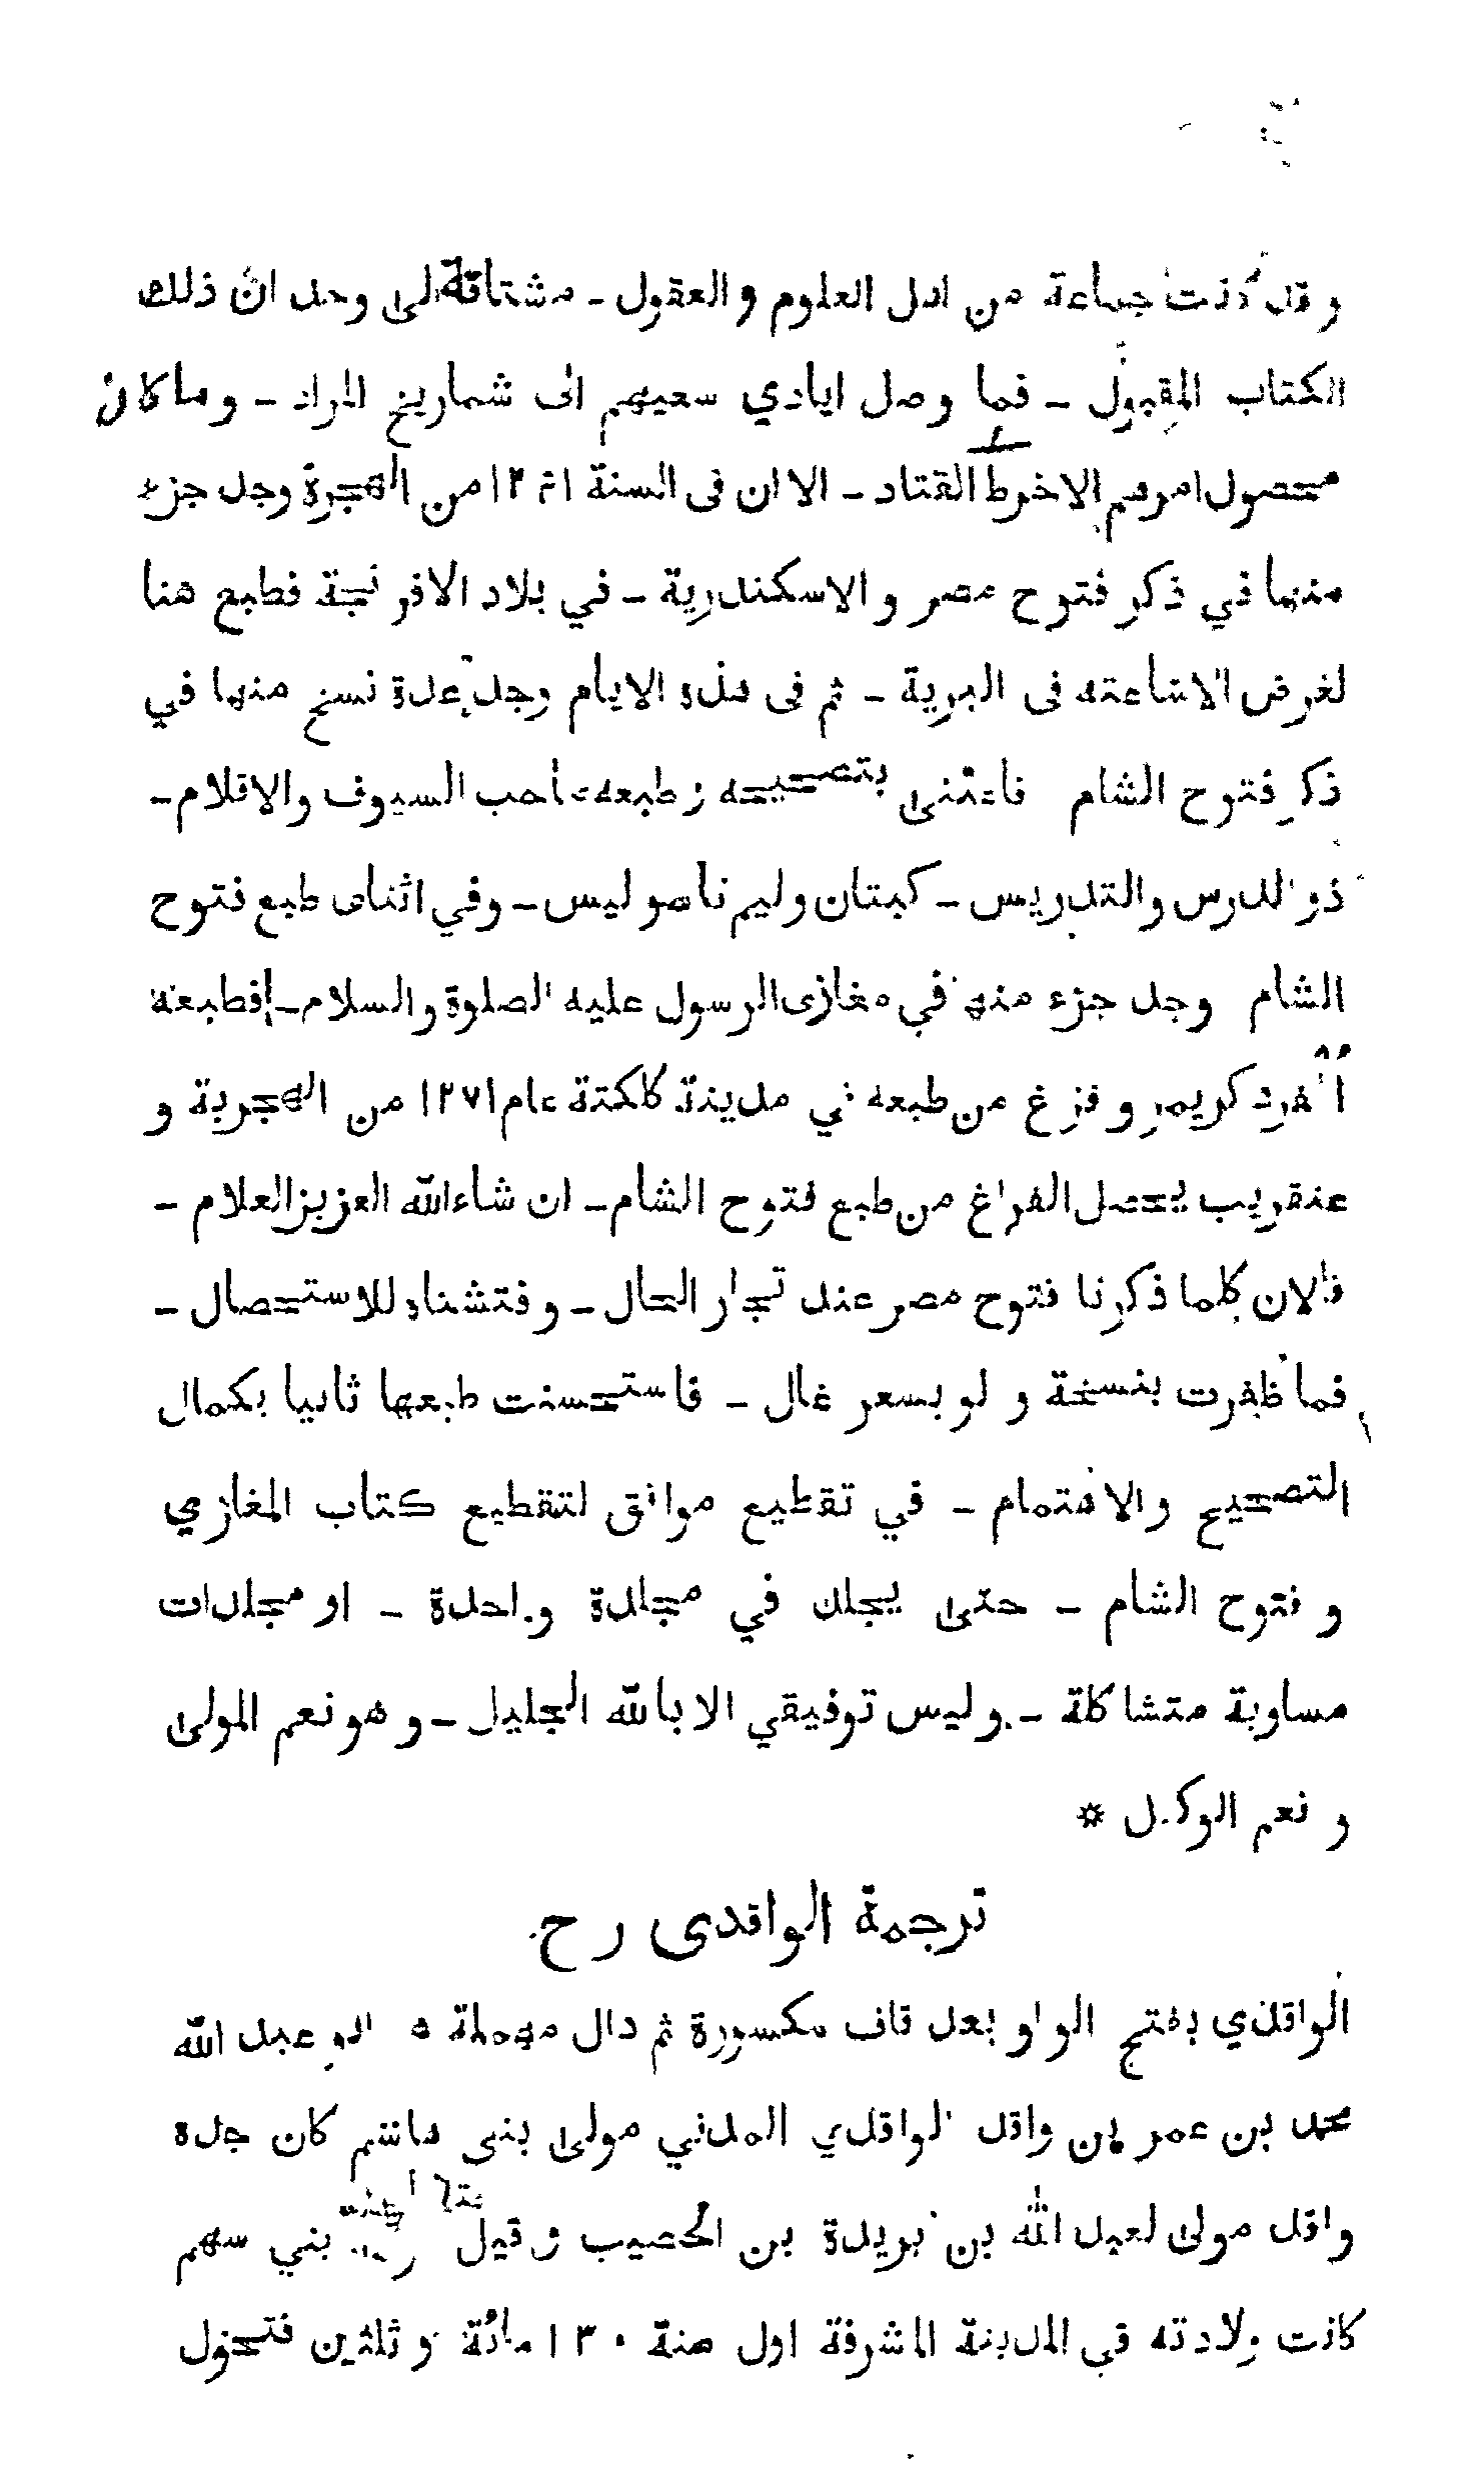 و قد كانت جماعة من اهل العلوم و العقول - مشتاقة الى وجد ان ذلك
الكتاب المقبول - فما وصل ايادي سعيهم الى شماريخ المراد - و ما كان
محصول امرهم الا خرط القتاد - الا ان فى السنة من الهجرة وجد جزء
منها في ذكر فتوح مصر و الاسكندرية - في بلاد الافرنجة فطبع هنا
لغرض الاشاعته فى البرية - ثم فى هذه الايام وجد عدة نسخ منها في
ذكر فتوح الشام فاعتنى بتصحيحه و طبعه صاحب السيوف والاقلام -
ذو الدرس والتدريس - كبتان وليم ناصو ليس - وفي اثناى طبع فتوح
الشام وجد جزء منها في مغازى الرسول عليه الصلوة والسلام - فطبعته
الفرد كريمر و فرغ من طبعه في مدينة كلكتة عام ١٢٧١ من الهجرية و
عنقريب يحصل الفراغ من طبع فتوح الشام - ان شاء الله العزيز العلام -
فالان كلما ذكرنا فتوح مصر عند تجار الحال - و فتشناه للاستحصال -
فما ظفرت بنسخة و لو بسعر غال - فاستحسنت طبعها ثانيا بكمال
التصحيح والاهتمام - في تقطيع موافق لتقطيع كتاب المغازي
و فتوح الشام - حتى يجلد في مجلدة واحدة - او مجلدات
مساوية متشاكلة - و ليس توفيقي الا بالله الجليل - و هو نعم المولى
و نعم الوكيل *
ترجمة الواقدى ر ح
الواقدي بفتح الواو بعد قاف مكسورة ثم دال مهملة ه ابو عبد الله
محمد بن عمر بن واقد الواقدي المدني مولى بنى هاشم كان جده
واقد مولى لعبد الله بن بريدة بن الحصيب و قيل بني سهم
كانت ولادته في المدينة المشرفة اول سنة ١٣٠ مائة و ثلثين فتحول